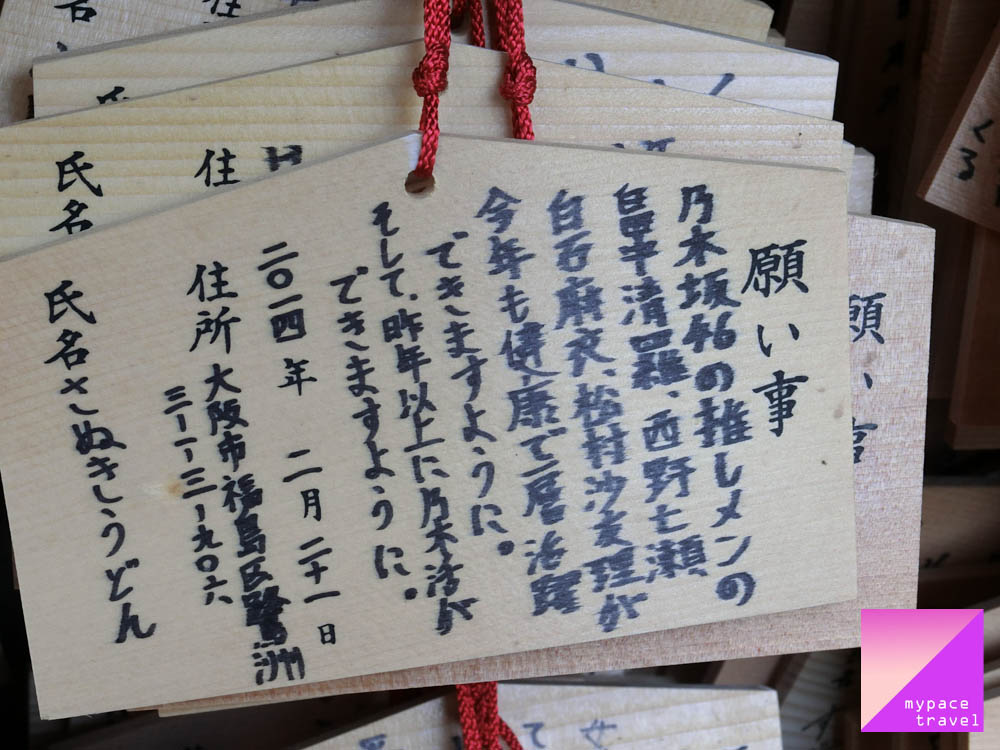 願い事
乃木坂46の推しメンの
白石麻衣、松村沙友理が
今年も健康で一層活躍
できますように。
そして、昨年以上に乃木活が
できますように。
二〇一四年 二月二十一日
住所 大阪市福島区鷺洲
氏名 さぬきうどん
住
氏名
願い事
くろ
mypace
travel